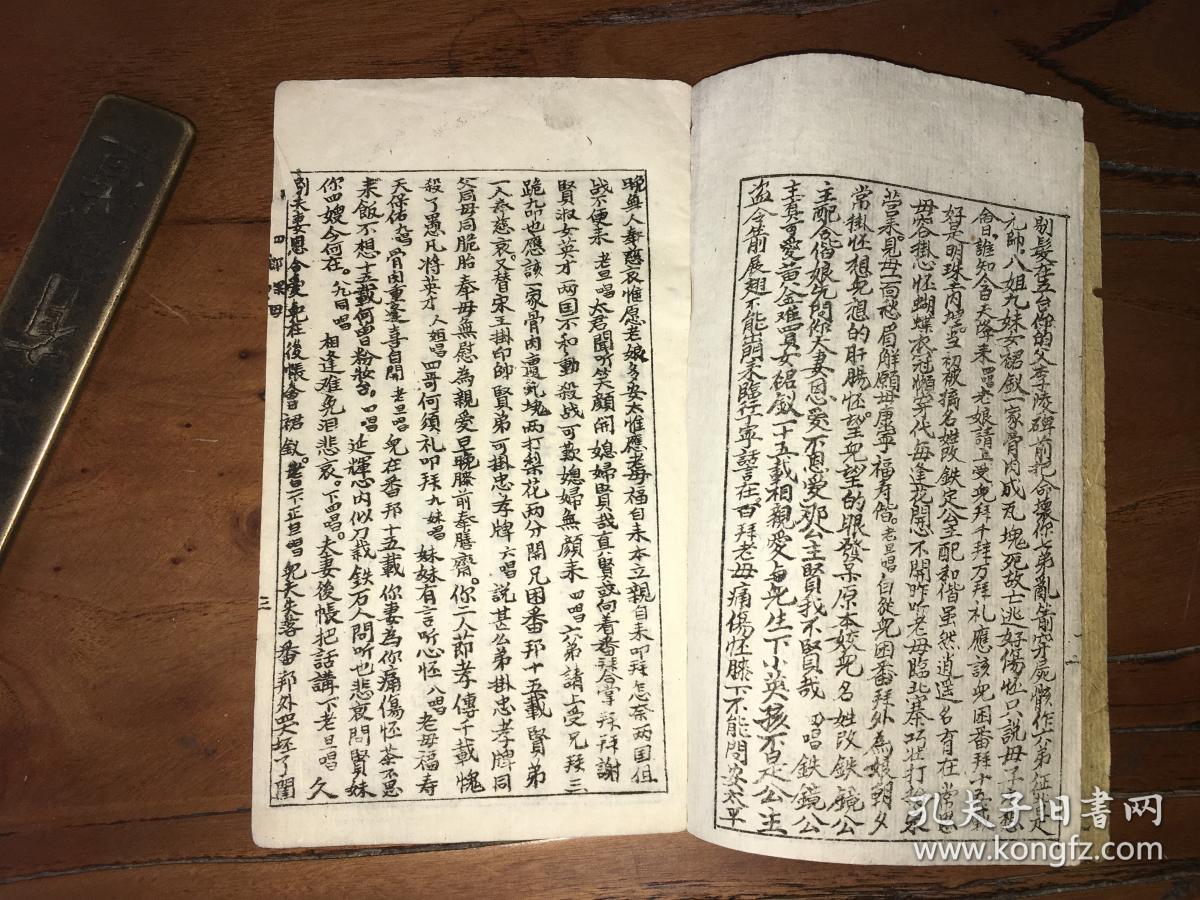 剔髮在五台你的父李陵碑前把命壞你七弟亂箭穿屍骸你六弟征
元帥八姐九妹女裙釵一家骨肉成瓦塊死故亡逃好傷怀只說母子
會誰知今合天降來四唱老娘請上受兒拜千拜万拜礼應該兒困番拜十五
好是明珠土内埋当初被擒名姓改鉄定公主配和谐虽然逍遥名育在常思
毋谷掛心怀蝴蝶衣冠懒穿代每逢花開忠不開昨听老毋臨北寨巧壮打扮
营来見毋一面愁眉解願毋康寧福寿偕。老旦唱自从兒困番拜外為娘朝夕
常掛怀想兒想的肝腸怀望兒望的眼發呆原本姣兒名姓改鉄鏡公
主配合偕娘先問你夫妻因愛不恩愛那公主賢我不賢哉四唱鉄鏡公
主真可愛黄金难買女裙釵十五載相親愛与兒生下小英孩不是公主
盗令箭展翅不能出関來臨行寧話言在百拜老母痛傷怀膝下不能問安太平
晚無人奉慈哀惟愿老娘多安太惟應老母福自来本立親自来叩拜怎奈兩国伹
战不便来老旦唱太君聞听笑顔開媳婦賢哉真賢哉向着番拜合掌拜拜謝
賢淑女英才兩国不和動殺战可歎媳婦無顔来四唱六弟請上受兄拜三
跪九叩也應該一家骨肉禀氣塊兩打梨花兩分開兄困番邦十五載賢弟
一人奉慈哀又替宋王掛印帥賢弟可掛忠孝牌六唱說甚么弟掛忠孝牌同
父同母同脆胎奉母無慰為親愛旦晚膝前奉膳齋。你二人節孝傳千載愧
殺了愚凡將英才八姐唱四哥何須礼叩拜九妹唱妹妹有言听心怀八唱老毋福寿
天保佑九唱骨肉重逢喜自開老旦唱兒在番邦十五載你妻為你痛傷怀茶不思
来飯不想十五載何曾粉妝台四唱延輝心内似刀栽鉄万人問听也悲哀問賢妹
你四嫂今何在。八九同唱相逢难免泪悲哀。下四唱。夫妻後帳把話講下老旦唱久
别夫妻恩合愛兒在後帳會裙釵。下正旦唱兒夫失落番邦外哭坏了閨
四郎探母
三
孔夫子旧書网
www.kongfz.com